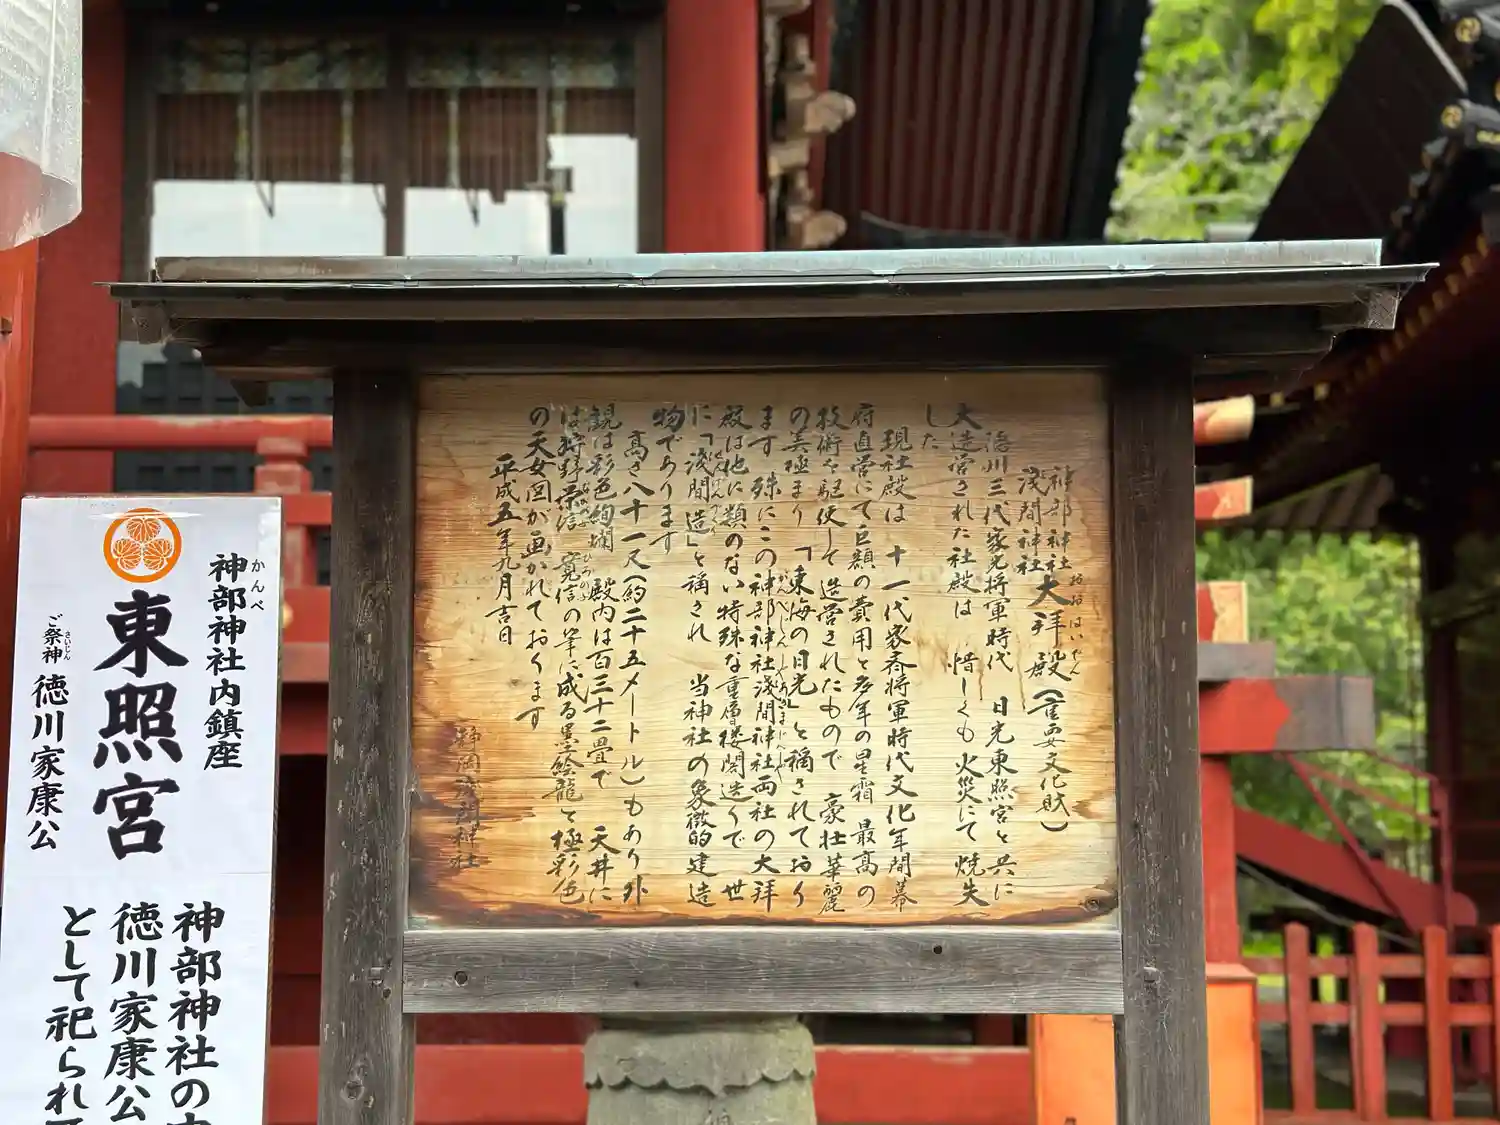 神部神社
浅間神社
大拝殿(重要文化財)
おおはいでん
徳川三代家光将軍時代 日光東照宮と共に
大造営された社殿は 惜しくも火災にて焼失
した
現社殿は 十一代家斉将軍時代文化年間幕
府直営にて巨額の費用と多年の星霜 最高の
技術を駆使して造営されたもので 豪壮華麗
の美極まり 「東海の日光」と称されており
ます 殊にこの神部神社浅間神社両社の大拝
殿は他に類のない特殊な重層楼閣造りで 世
に「浅間造」と称され 当神社の象徴的建造
せんげんづくり
物であります
高さ八十一尺(約二十五メートル)もあり外
観は彩色絢爛 殿内は百三十二畳で 天井に
は狩野栄信 寛信の筆に成る墨絵龍と極彩色
の天女図が画かれております
平成五年九月吉日
静岡浅間神社
神部神社内鎮座
かんべ
東照宮
ご祭神 徳川家康公
さいじん
神部神社の
徳川家康公
として祀られ